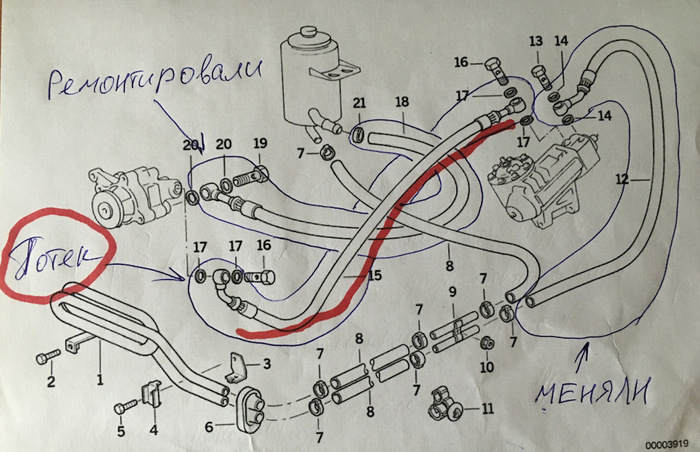 16 13 14
17
Ремонтировали
21 18
14
7 17
20 20 19
12
17 17 16
Потек
15 8 7
9
7 8 7
7
2 1 3 10
7 МЕНЯЛИ
5 4 6 8 11
7
00003919